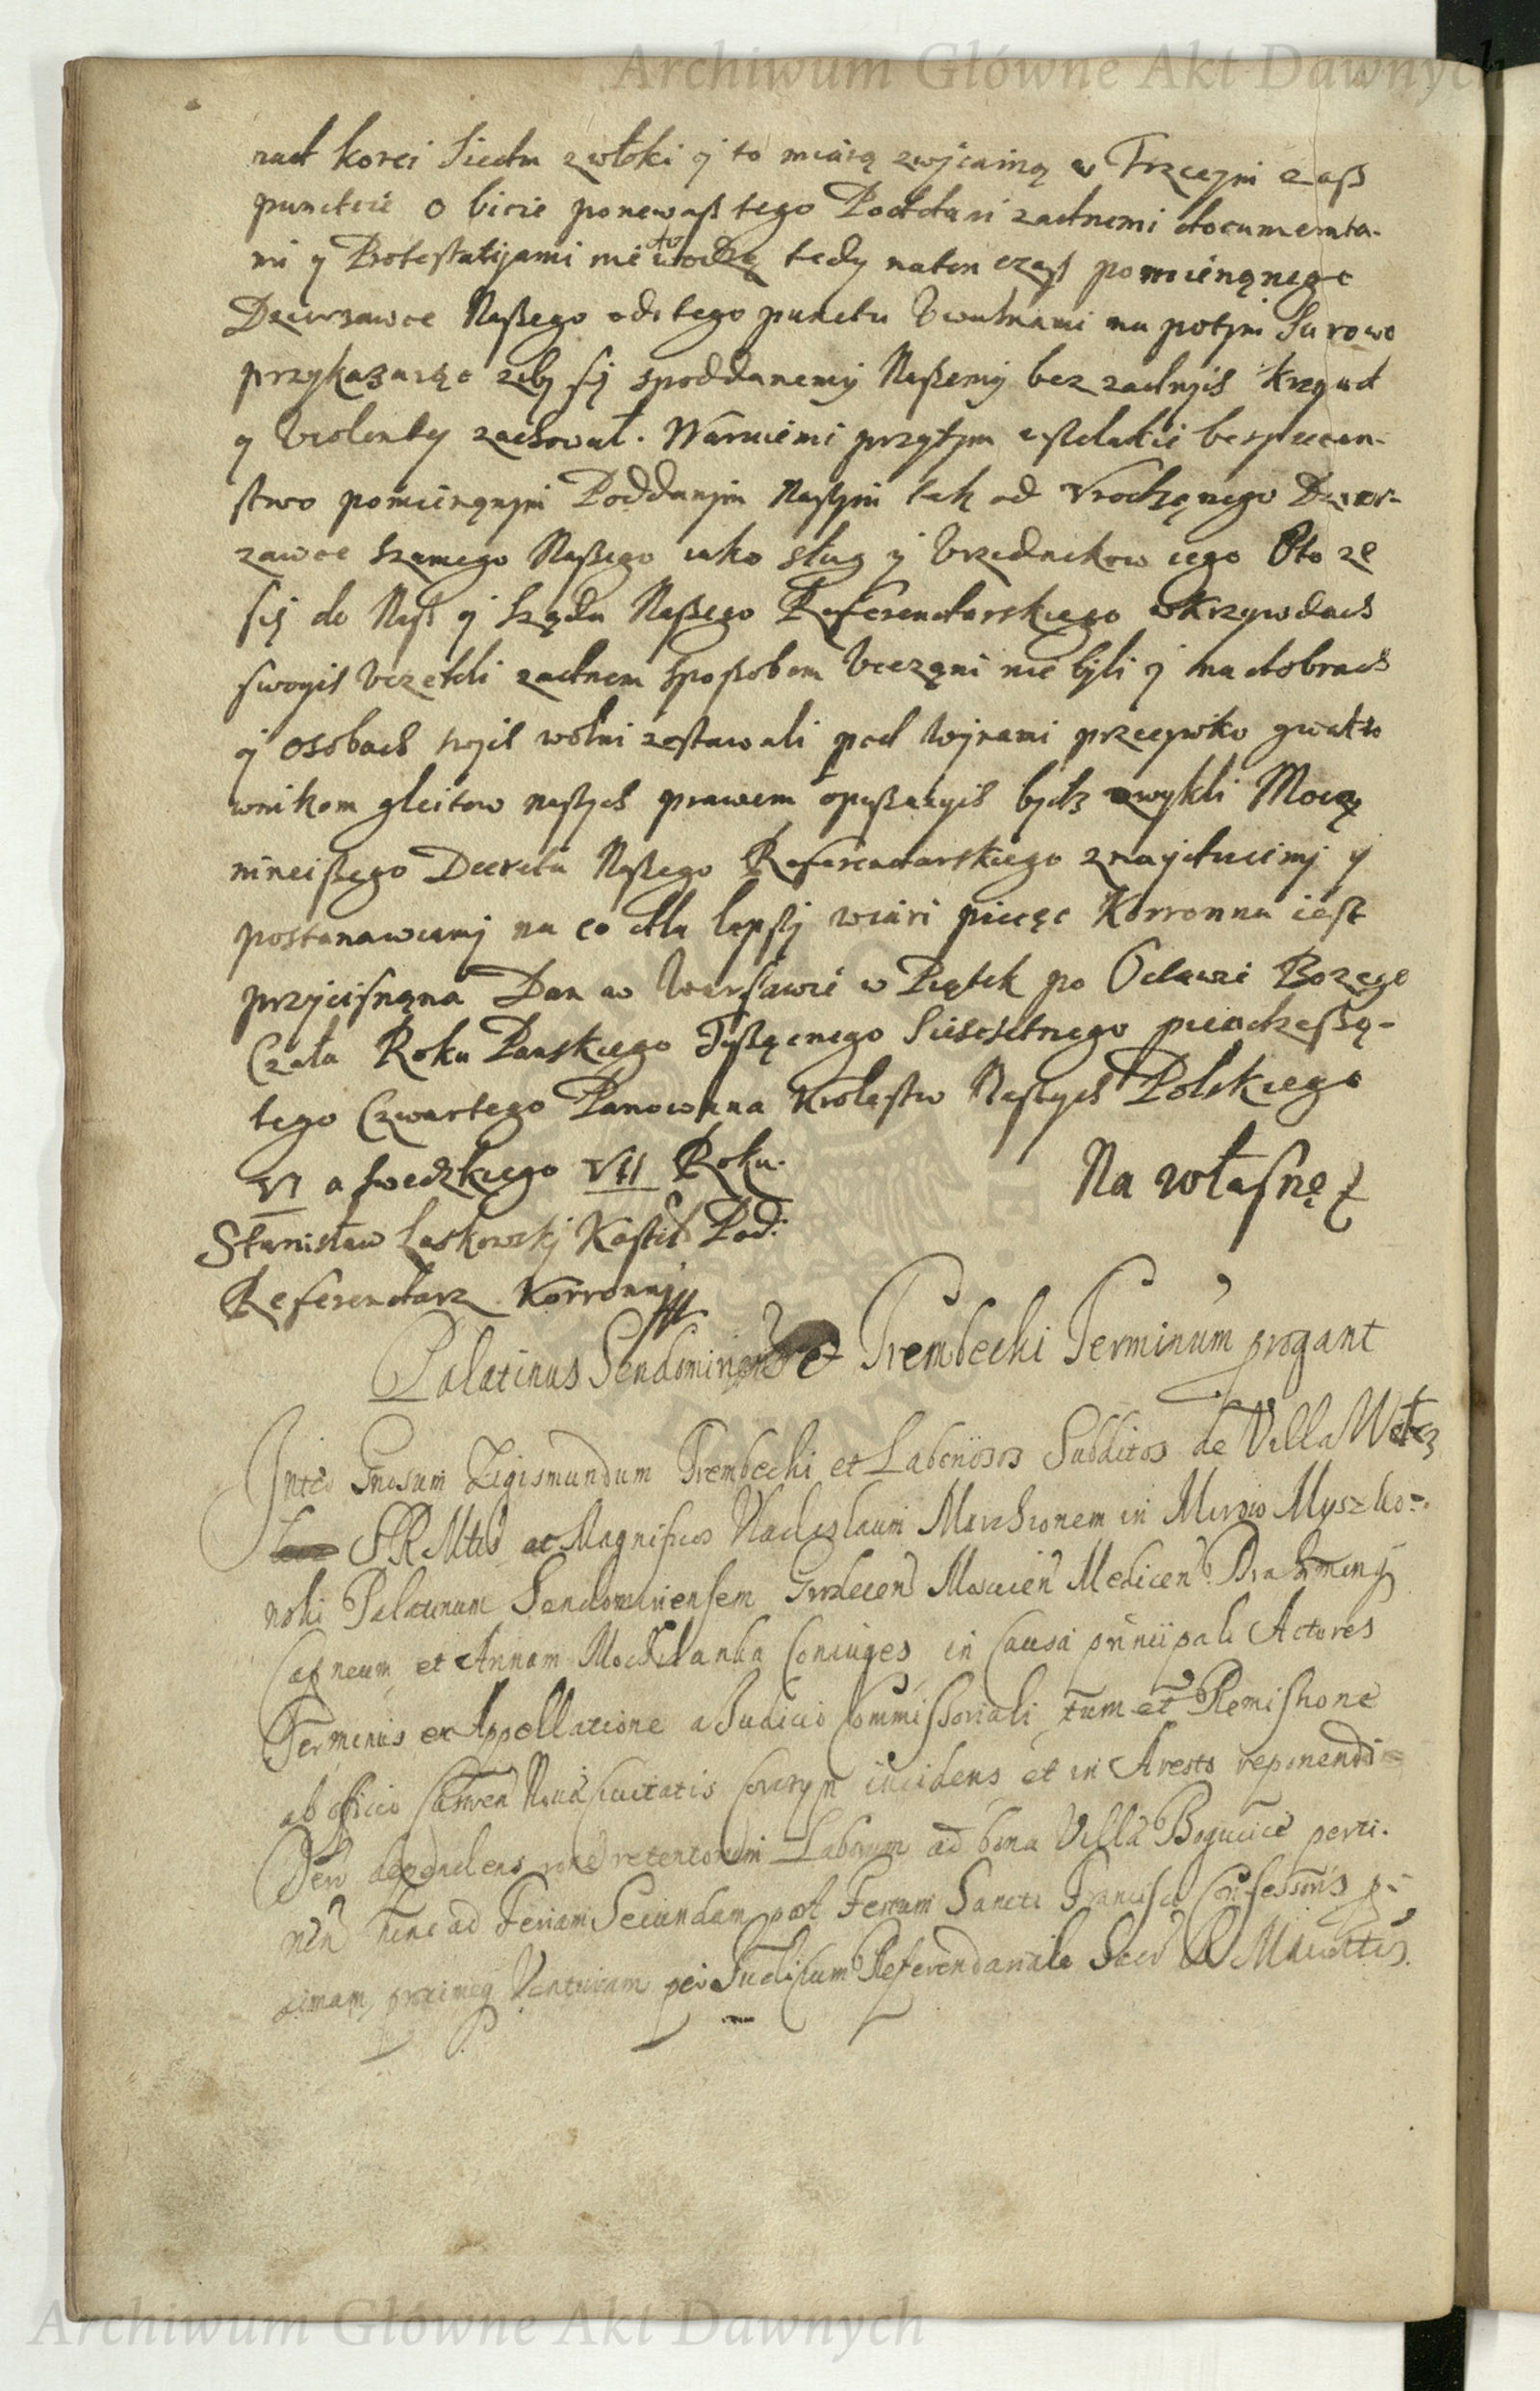 Archiwum Główne Akt Dawnych
nad korci siedm z włoki y to miarą zwyczainą w Trzecym zaß
puncticie o bicie ponewaß tego Poddani zadnemi documenta-
mi y Protestatijami nie dowodzą tedy naten czaß pomienąnego
Dzierzawce Naßego od tego punctu Uwalnami na potym Surowo
przykazuiąc zeby się spoddanemy Naßemy bez zadnych krzywd
y violenty zachował. Waruiemi przytym wßelakie bespieczen-
stwo pomienąnym Poddanym Naßym tak od Vrodząnego Dzier-
zawce samego Naßego iako sług y Vrzednikow iego Oto ze
się do Naß y Sądu Naßego Referendarskiego o krzywdach
swoych Uczekli zadnem sposobem Ucząni nie byli y na dobrach
y osobach swych wolni zostawali pod Wynami przecywko gwałto
wnikom gleitow naßych prawem opißanych bydz zwykli Mocą
ninieißego Decretu Naßego Referendarskiego znayduiemy y
postanawiamy na co dla lepßy wiari pieczęc Korronna iest
przycisnąna Dan w Warsawie w Piątek po Octawie Bozego
Czała Roku Panskiego Tyßącnego Siescsetnego piendzeßą-
tego Czwartego Panowana Krolestw Naßych Polskiego
VI a swedzkiego VII Roku.
Na własnę
Stanisław Laskowskj Kastel Pod:
Referendarz Korronny
Palatinus Sendomirien et Trembecki Terminum progant
Inter Gnosum Zigismundum Trembecki et Laboriosos Subditos de Villa
SRMtis ac Magnificos Vladislaum Marchionem in Mirow Myszko-
wski Palatinum Sandomiriensem Grodecen Medicen
et Annam Coniuges in Causa principali Actores
Terminus ex Appellatione a Iudicio Commissoriali tum et Remissione
ab officio Castren Novae Civitatis Corczyn incidens et in Aresto reponendi
retentorum Laborum ad bona Villa Bogucice perti-
nen hinc ad Feriam Secundam post Festum Sancti Francisci Confessoris p-
ximam Venturam per Iudicium Referendariale Sacr R Maiettis.
Archiwum Główne Akt Dawnych